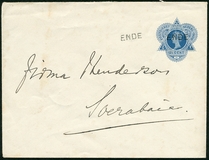 ENDE
Firma Henderson
Soerabaia.